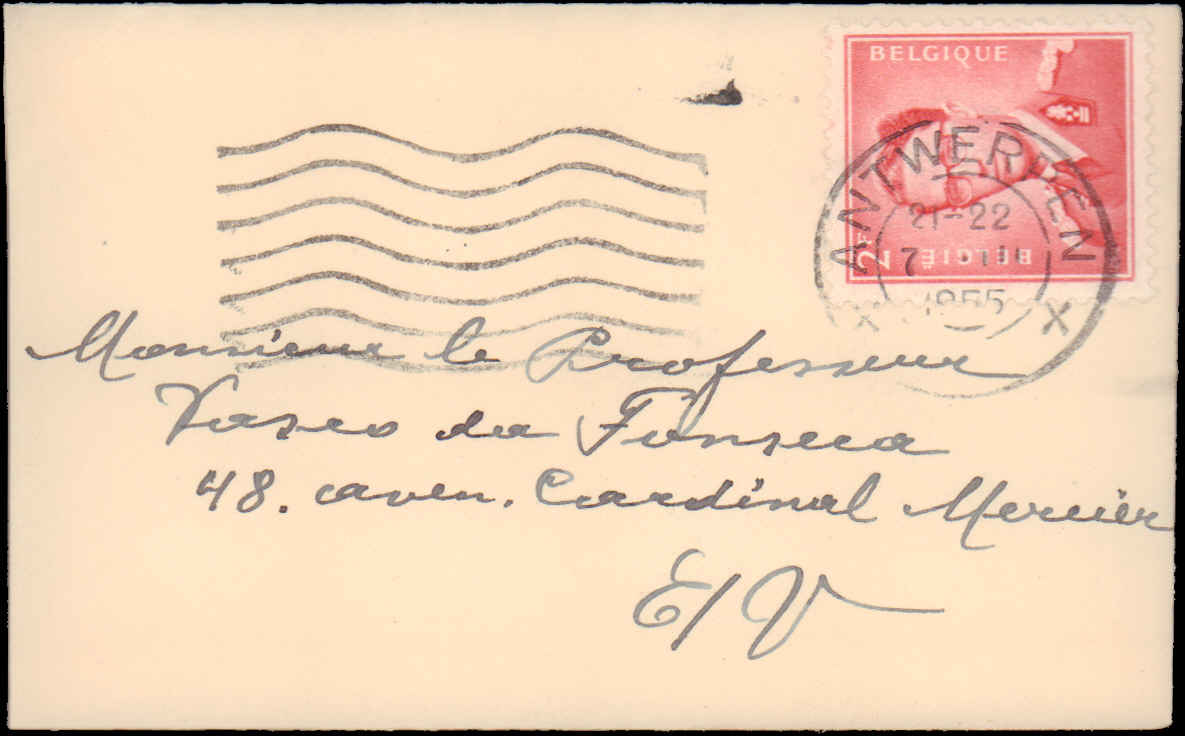 BELGIQUE
2F BELGIË
ANTWERPEN
21-22
7
1955
X X
Monsieur le Professeur
Vasco da Fonseca
48. aven. Cardinal Mercier
E/V